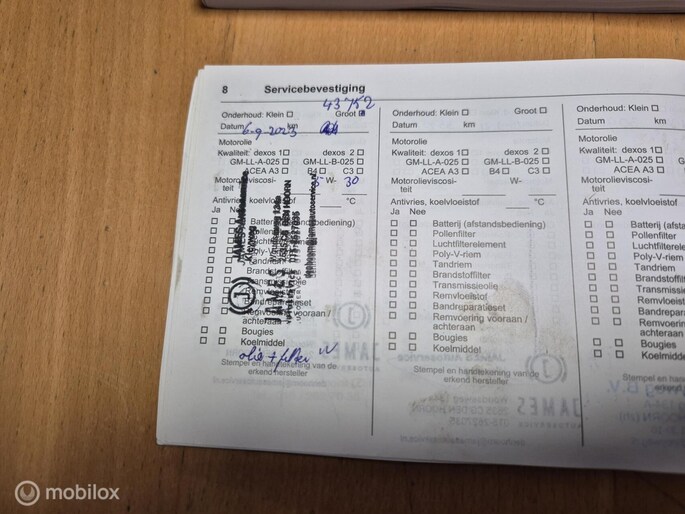 8 Servicebevestiging
43752
Onderhoud: Klein ☐ Groot
Datum 6-9-2023 km
Motorolie
Kwaliteit: dexos 1 ☐ dexos 2 ☐
GM-LL-A-025 ☐ GM-LL-B-025 ☐
ACEA A3 ☐ B4 ☐ C3 ☐
Motorolieviscosi- 5 W- 30
teit
Antivries, koelvloeistof °C
Ja Nee
☐ ☐ Batterij (afstandsbediening)
☐ ☐ Pollenfilter
☐ ☐ Luchtfilterelement
☐ ☐ Poly-V-riem
☐ ☐ Tandriem
☐ ☐ Brandstoffilter
☐ ☐ Transmissieolie
☐ ☐ Remvloeistof
☐ ☐ Bandreparatieset
☐ ☐ Remvoering vooraan /
achteraan
☐ ☐ Bougies
☐ ☐ Koelmiddel
olie + filter
Stempel en handtekening van de
erkend hersteller
JAMES
AUTOSERVICE
Onderhoud: Klein ☐ Groot ☐
Datum km
Motorolie
Kwaliteit: dexos 1 ☐ dexos 2 ☐
GM-LL-A-025 ☐ GM-LL-B-025 ☐
ACEA A3 ☐ B4 ☐ C3 ☐
Motorolieviscosi- W-
teit
Antivries, koelvloeistof °C
Ja Nee
☐ ☐ Batterij (afstandsbediening)
☐ ☐ Pollenfilter
☐ ☐ Luchtfilterelement
☐ ☐ Poly-V-riem
☐ ☐ Tandriem
☐ ☐ Brandstoffilter
☐ ☐ Transmissieolie
☐ ☐ Remvloeistof
☐ ☐ Bandreparatieset
☐ ☐ Remvoering vooraan /
achteraan
☐ ☐ Bougies
☐ ☐ Koelmiddel
Stempel en handtekening van de
erkend hersteller
Onderhoud: Klein ☐
Datum
Motorolie
Kwaliteit: dexos 1 ☐
GM-LL-A-025 ☐
ACEA A3 ☐
Motorolieviscosi-
teit
Antivries, koelvloeistof
Ja Nee
☐ ☐ Batterij (afsta
☐ ☐ Pollenfilter
☐ ☐ Luchtfilterele
☐ ☐ Poly-V-riem
☐ ☐ Tandriem
☐ ☐ Brandstoffilt
☐ ☐ Transmissie
☐ ☐ Remvloeist
☐ ☐ Bandrepara
☐ ☐ Remvoerin
achteraan
☐ ☐ Bougies
☐ ☐ Koelmidde
Stempel en han
erken
mobilox